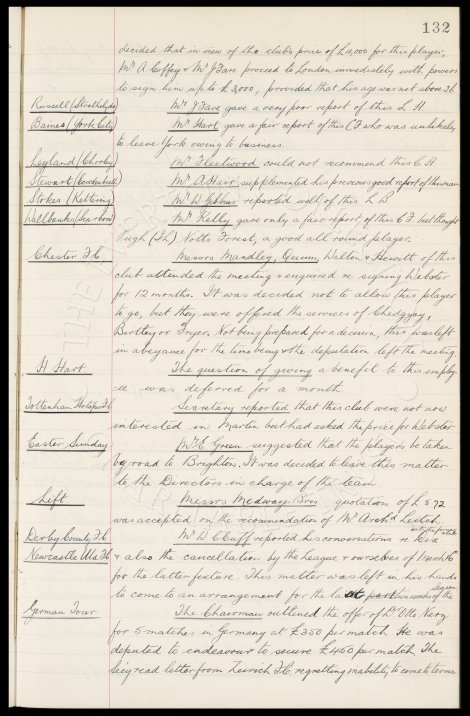 132
decided that in view of the clubs price of £4,000 for this player,
Mr A Coffey & Mr J Fare proceed to London immediately with powers
to sign him up to £3,000, provided that his age was not above 26.
Russell (Strathclyde) Mr J Fare gave a very poor report of this L H.
Baines (York City) Mr Hart gave a fair report of this C F who was unlikely
to leave York owing to business.
Leyland (Chorley) Mr Fleetwood could not recommend this C H.
Stewart (Cowdenbeath) Mr A Hair, supplemented his previous good report of this man
Stokes (Kettering) Mr W Gibbins reported well of this L B
Wallbanks (Scarboro) Mr Kelly gave only a fair report of this C F. but thought
Pugh (I L) Notts Forest, a good all round player.
Chester F C Messrs Mandley, Quinn, Walton & Hewitt of this
club attended the meeting & enquired re signing Webster
for 12 months. It was decided not to allow this player
to go, but they were offered the services of Chedgzoy,
Bentley or Fryer. Not being prepared for a decision, this was left
in abeyance for the time being & the deputation left the meeting
H Hart The question of giving a benefit to this employ
ee was deferred for a month
Tottenham Hotspur F C Secretary reported that this club were not now
interested in Martin but had asked the price for Webster
Easter Sunday Mr E Green suggested that the players be taken
by road to Brighton. It was decided to leave this matter
to the Directors in charge of the team
Lift Messrs Medway Bros quotation of £572
was accepted on the recommendation of Mr Archd Leitch
Derby County F C Mr W C Cuff reported his conversations re
Newcastle Utd F C & also the cancellation by the League & ourselves of March 16
for the latter fixture. This matter was left in his hands
to come to an arrangement for the last part two weeks of the season
German Tour The Chairman outlined the offer of Dr Otto Nerz
for 5 matches in Germany at £350 per match. He was
deputed to endeavour to secure £450 per match. The
Sec'y read letter from Zurich F C regretting inability to come to terms.